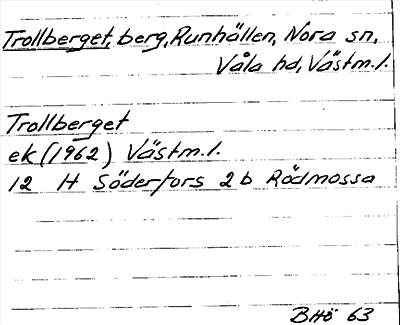 Trollberget, berg, Runhällen, Nora sn,
Våla hd, Västm.l.
Trollberget
ek (1962) Västm.l.
12 H Söderfors 2 b Rödmossa
BHö 63